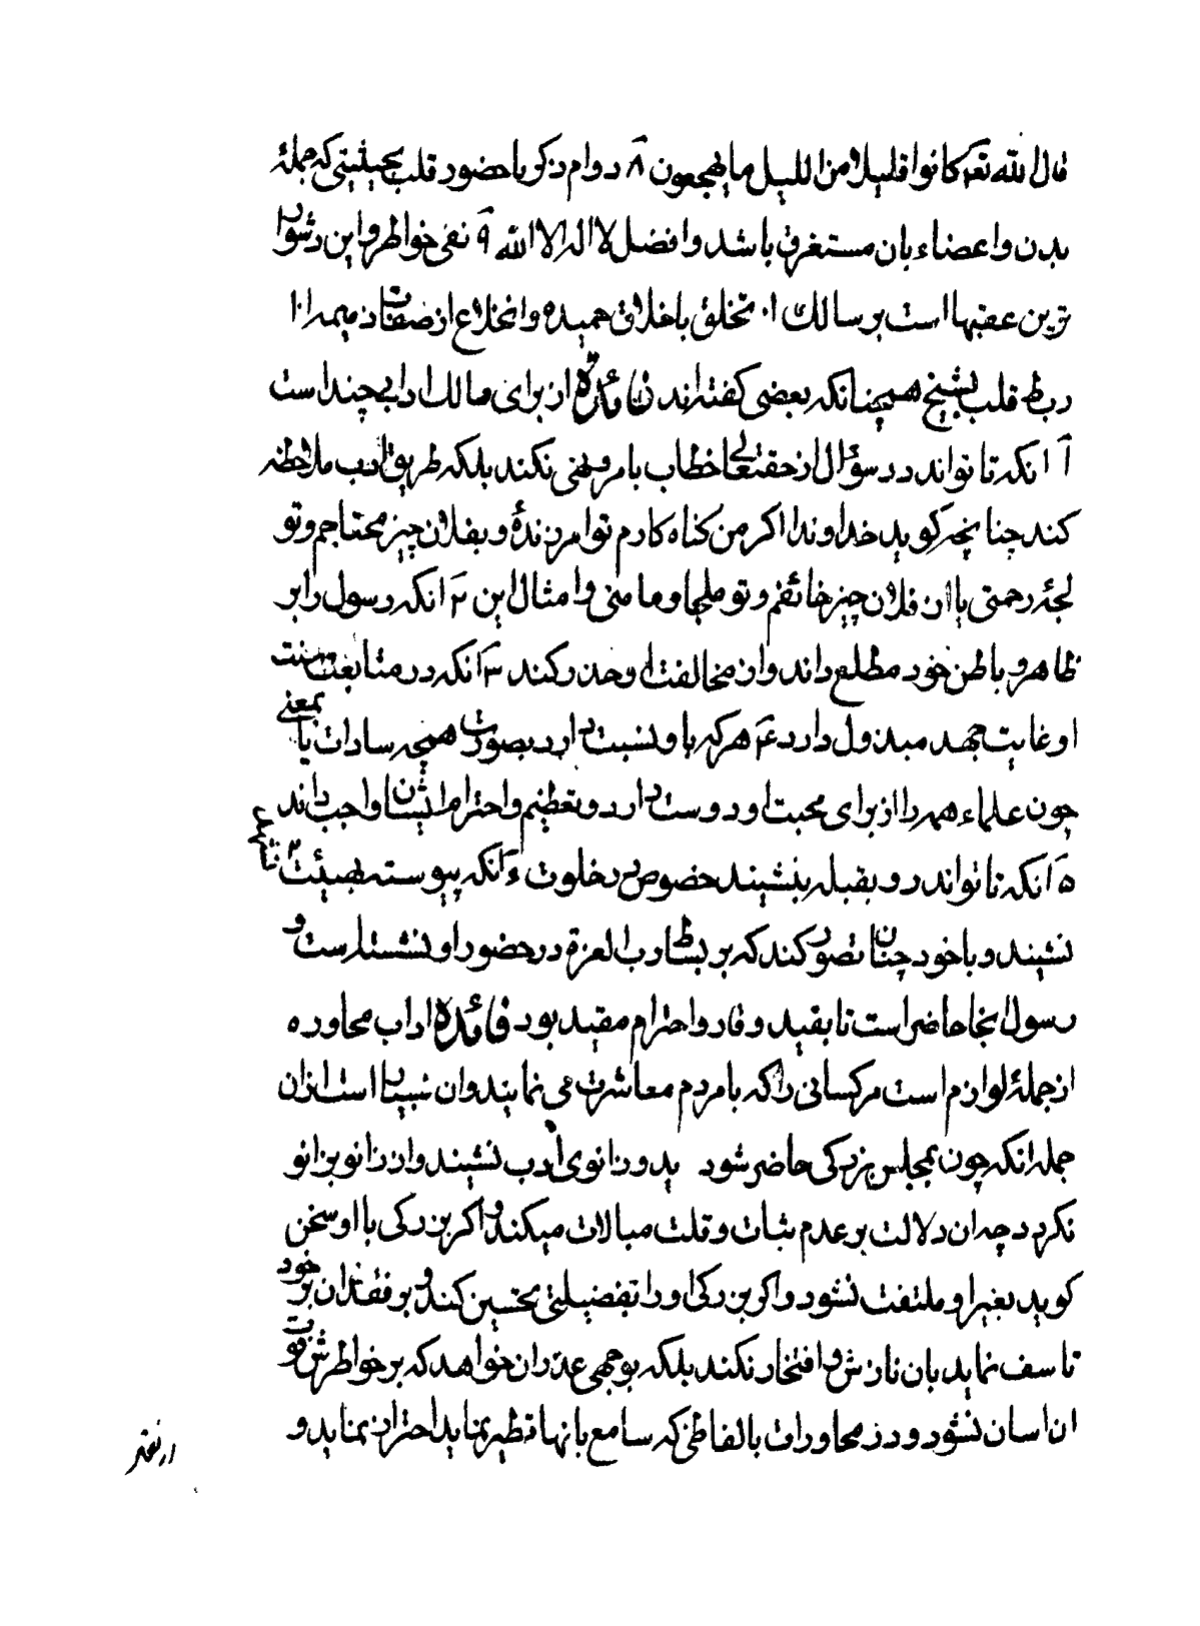 قال الله تعه کانوا قلیلا من اللیل ما یهجعون ۸ دوام ذکر با حضور قلب بحیثیتی که جملهٔ
بدن و اعضاء بان مستغرق باشد و افضل لا اله الا الله ۹ نفی خواطر و این دشوار
ترین عقبها است بر سالک ۱۰ تخلق باخلاق حمیده و انخلاع از صفات ذمیمه ۱۱
ربط قلب بشیخ همچنانکه بعضی کفته اند فائدة از برای سالک ادابی چند است
۱ انکه تا تواند در سؤال از حقتعالی خطاب بامر و نهی نکند بلکه طریق ادب ملاحظه
کند چنانچه کوید خداوندا اکر من کناه کارم تو امرزندهٔ و بفلان چیز محتاجم و تو
لجهٔ رحمتی یا از فلان چیز خائفم و تو ملجا و مامنی و امثال این ۲ انکه رسول را بر
ظاهر و باطن خود مطلع داند و از مخالفت او حذر کند ۳ انکه در متابعت سنت
او غایت جهد مبذول دارد ۴ هر که باو نسبت دارد بصورت همچه سادات یا بمعنی
چون علماء همه را از برای محبت او دوست دارد و تعظیم و احترام ایشان واجب داند
۵ انکه تا تواند رو بقبله بنشیند خصوص در خلوت ۶ انکه پیوسته بهیئت خاشع
نشیند و با خود چنان تصور کند که بر بساط رب العزة در حضور او نشسته است و
رسول بخا حاضر است تا بقید وقار و احترام مقید بود فائدة اداب محاوره
از جملهٔ لوازم است مر کسانی را که با مردم معاشرت می نمایند وان بسیار است ازان
جمله انکه چون بمجلس بزرکی حاضر شود بدو زانوی ادب نشیند و ان زانو بزانو
نکردد چه ان دلالت بر عدم ثبات و قلت مبالات میکند و اکر بزرکی با او سخن
کوید بغیر او ملتفت نشود و اکر بزرکی او را بفضیلتی تحسین کند و بر فقدان بر خود
تاسف نماید بان نازش و افتخار نکند بلکه بوجهی عذر ان خواهد که بر خواطرش فوت
ان اسان نشود و در محاورات بالفاظی که سامع بانها تطیر نماید احتراز نماید و